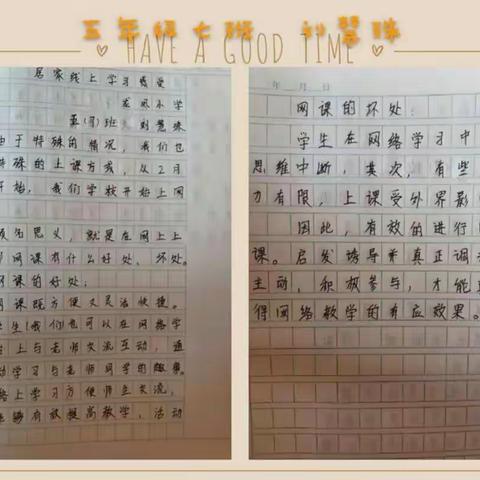 五年级七班 刘慧珠
HAVE A GOOD TIME
居家线上学习感受
龙凤小学
五(7)班 刘慧珠
由于特殊的情况，我们也
特殊的上课方式，从2月
开始，我们学校开始上网
顾名思义，就是在网上上
网课有什么好处、坏处。
网课的好处：
网课既方便又灵活快捷。
学生(我们)也可以在网络学
台上与老师交流互动，通
动学习与老师同学的趣事。
络上学习方便师生交流，
能够有效提高教学，活动
年 月 日
网课的坏处：
学生在网络学习中
思维中断，其次，有些
力有限，上课受外界影
因此，有效的进行
课。启发诱导并真正调
主动，积极参与，才能
得网络教学的有应效果。